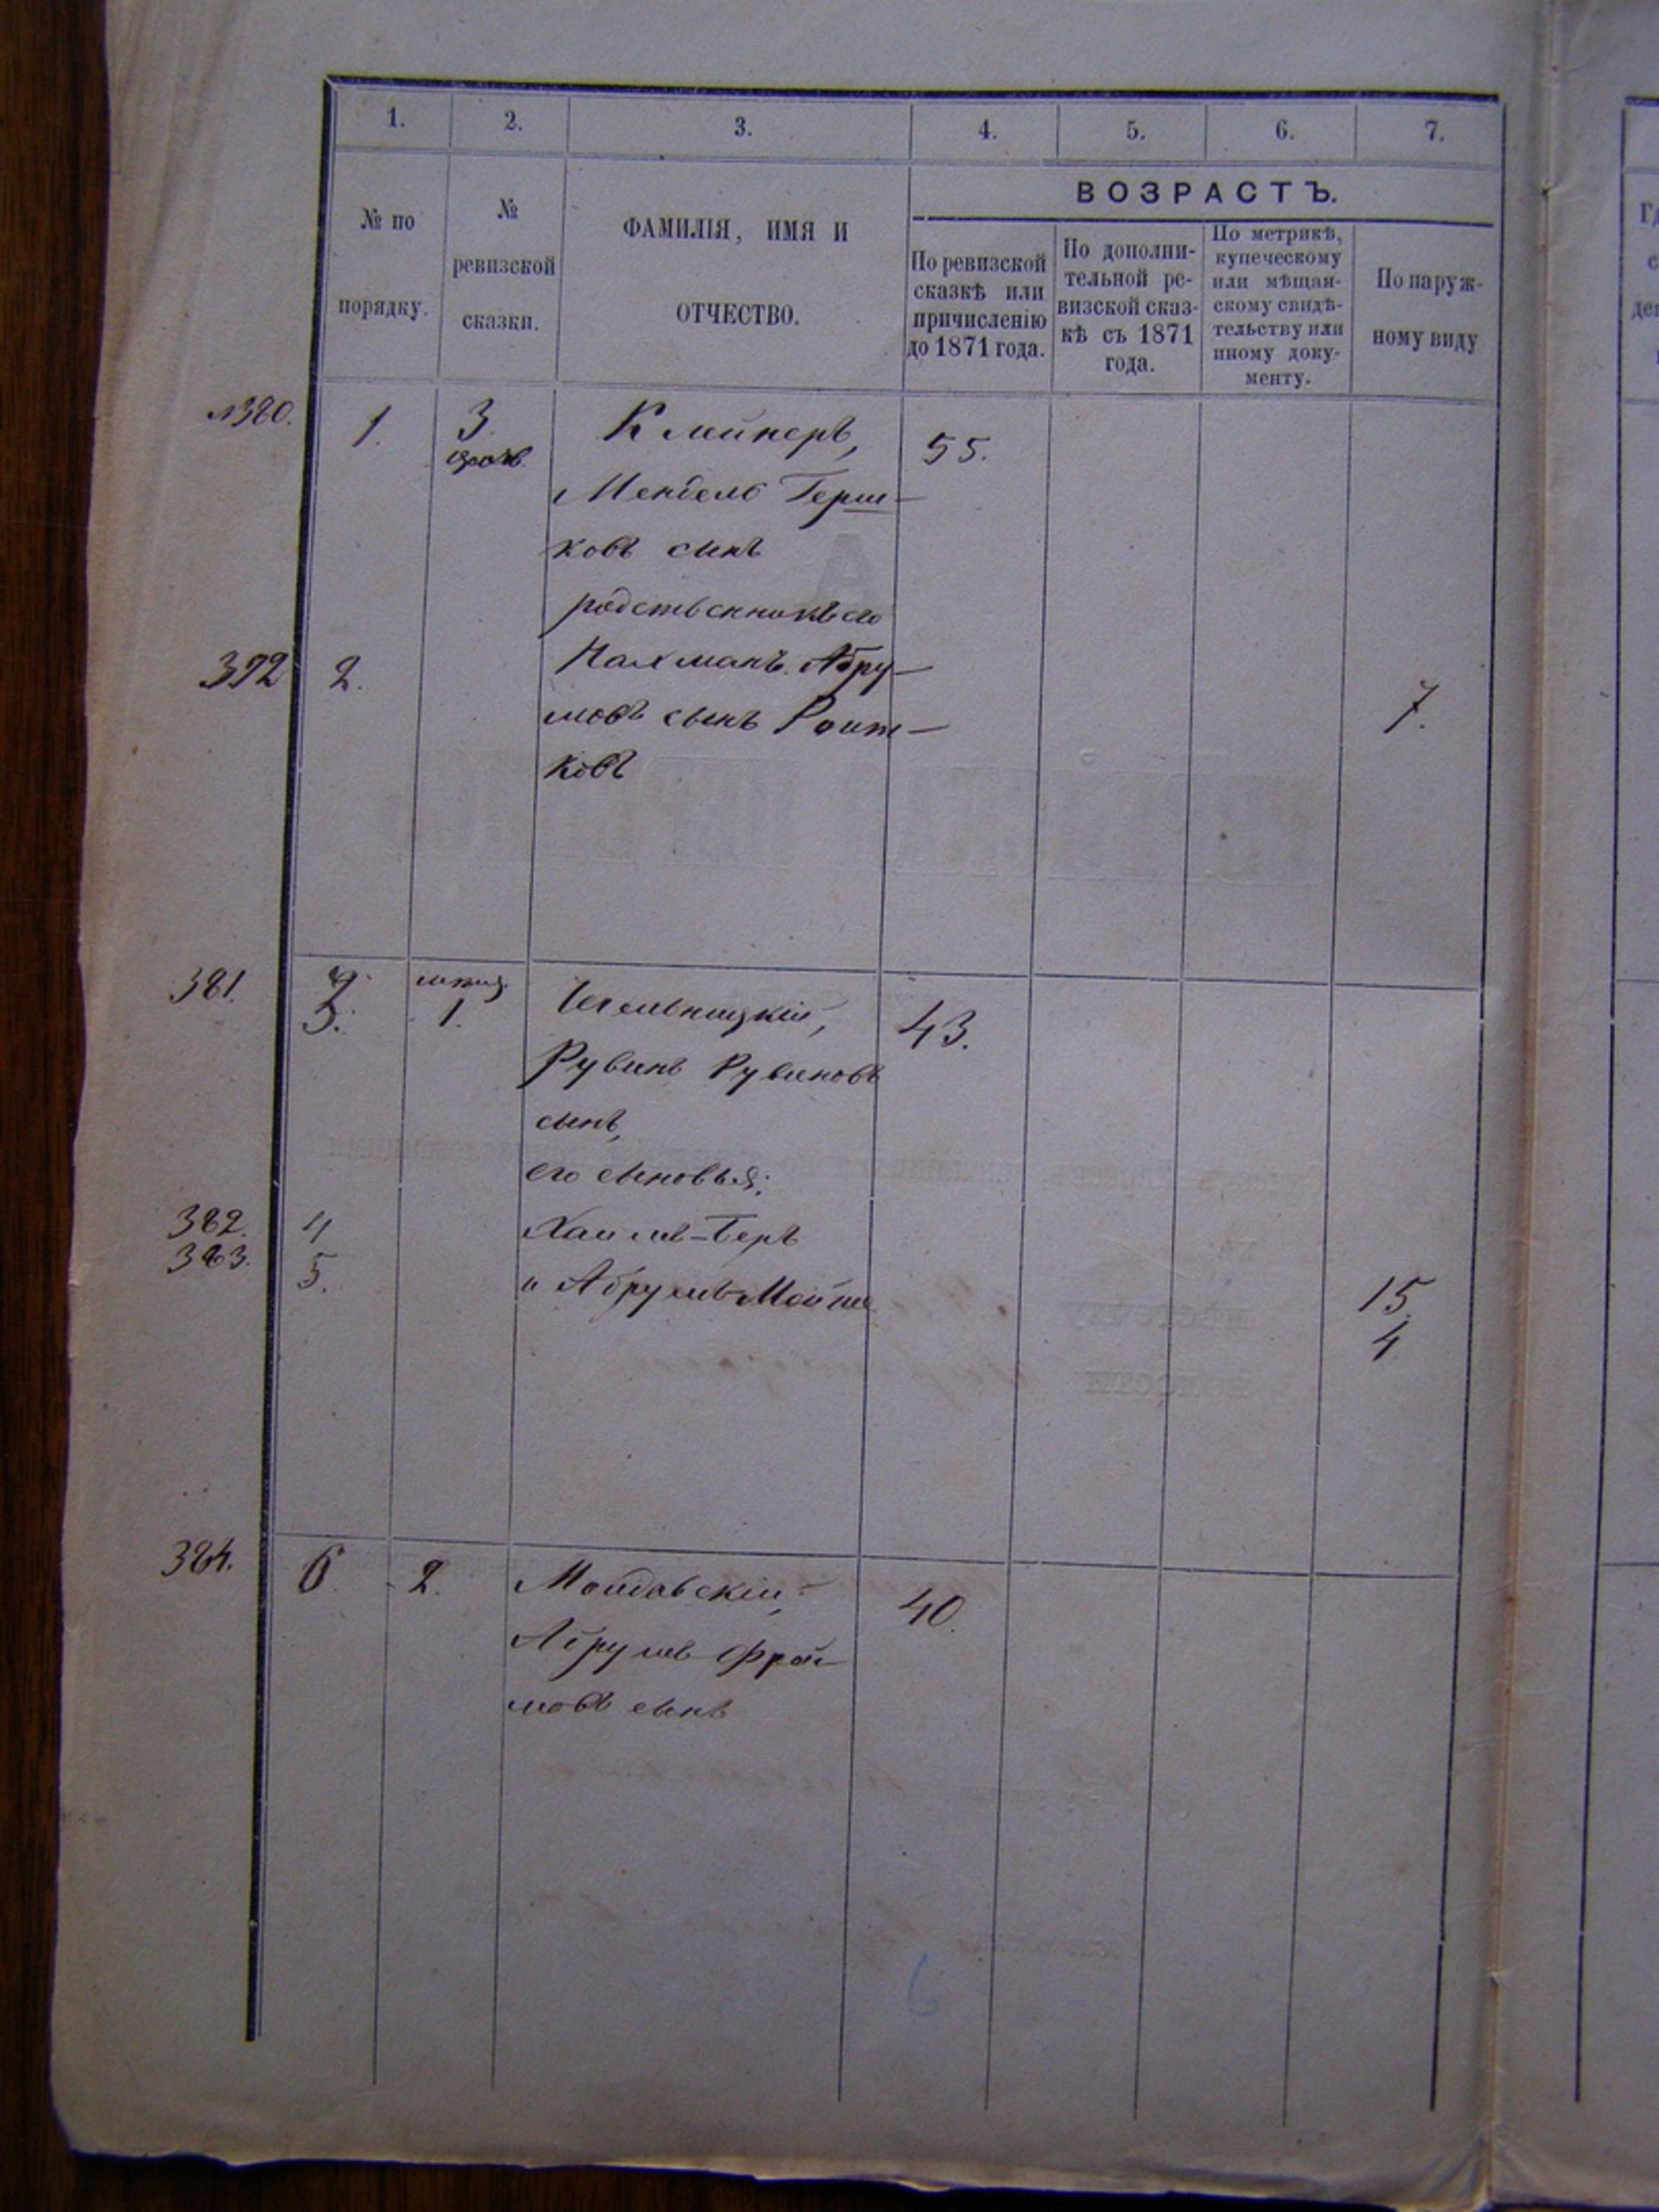 1. 2. 3. 4. 5. 6. 7.
№ по
порядку.
№
ревизской
сказки.
ФАМИЛІЯ, ИМЯ И
ОТЧЕСТВО.
ВОЗРАСТЪ.
По ревизской
сказкѣ или
причисленію
до 1871 года.
По дополни-
тельной ре-
визской сказ-
кѣ съ 1871
года.
По метрикѣ,
купеческому
или мѣщан-
скому свидѣ-
тельству или
иному доку-
менту.
По наруж-
ному виду
№380. 1. 3 Клейнеръ, 55.
Мендель Герш-
ковъ сынъ
родственникъ его
392 2. Нахманъ Абру-
мовъ сынъ Роит- 7.
ковъ
381. 3. 1. Чечельницкій, 43.
Рувинъ Рувиновъ
сынъ,
его сыновья:
382. 4 Хаимъ-Беръ 15.
383. 5. и Абрумъ-Мойше 4
384. 6 2. Молдавскій, 40.
Абрумъ Фрой-
мовъ сынъ
6